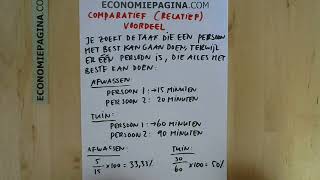 ECONOMIEPAGINA.COM
COMPARATIEF (RELATIEF)
VOORDEEL
JE ZOEKT DE TAAK DIE EEN PERSOON
HET BEST KAN GAAN DOEN, TERWIJL
ER ÉÉN PERSOON IS, DIE ALLES HET
BESTE KAN DOEN:
AFWASSEN:
PERSOON 1: →15 MINUTEN
PERSOON 2: 20 MINUTEN
TUIN:
PERSOON 1: →60 MINUTEN
PERSOON 2: 90 MINUTEN
AFWASSEN:
5/15 x100 = 33,3%
TUIN:
30/60 x100 = 50%
ECONOMIEPAGINA.COM